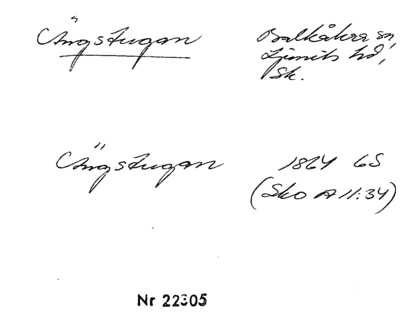 Ängstugan
Balkåkra sn,
Ljunits hd,
Sk.
Ängstugan
1864 GS
(Sko A 11:34)
Nr 22305